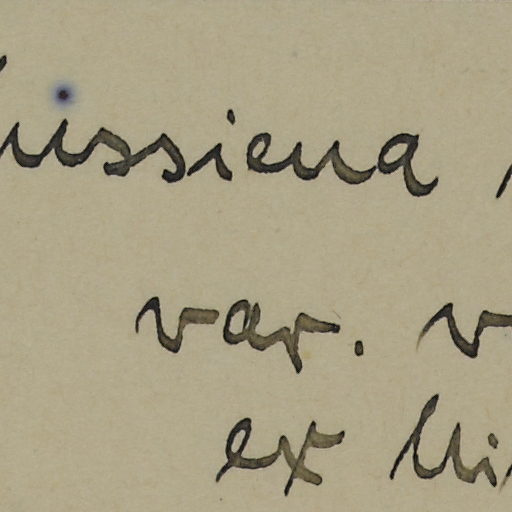 ussiena
var. v
ex